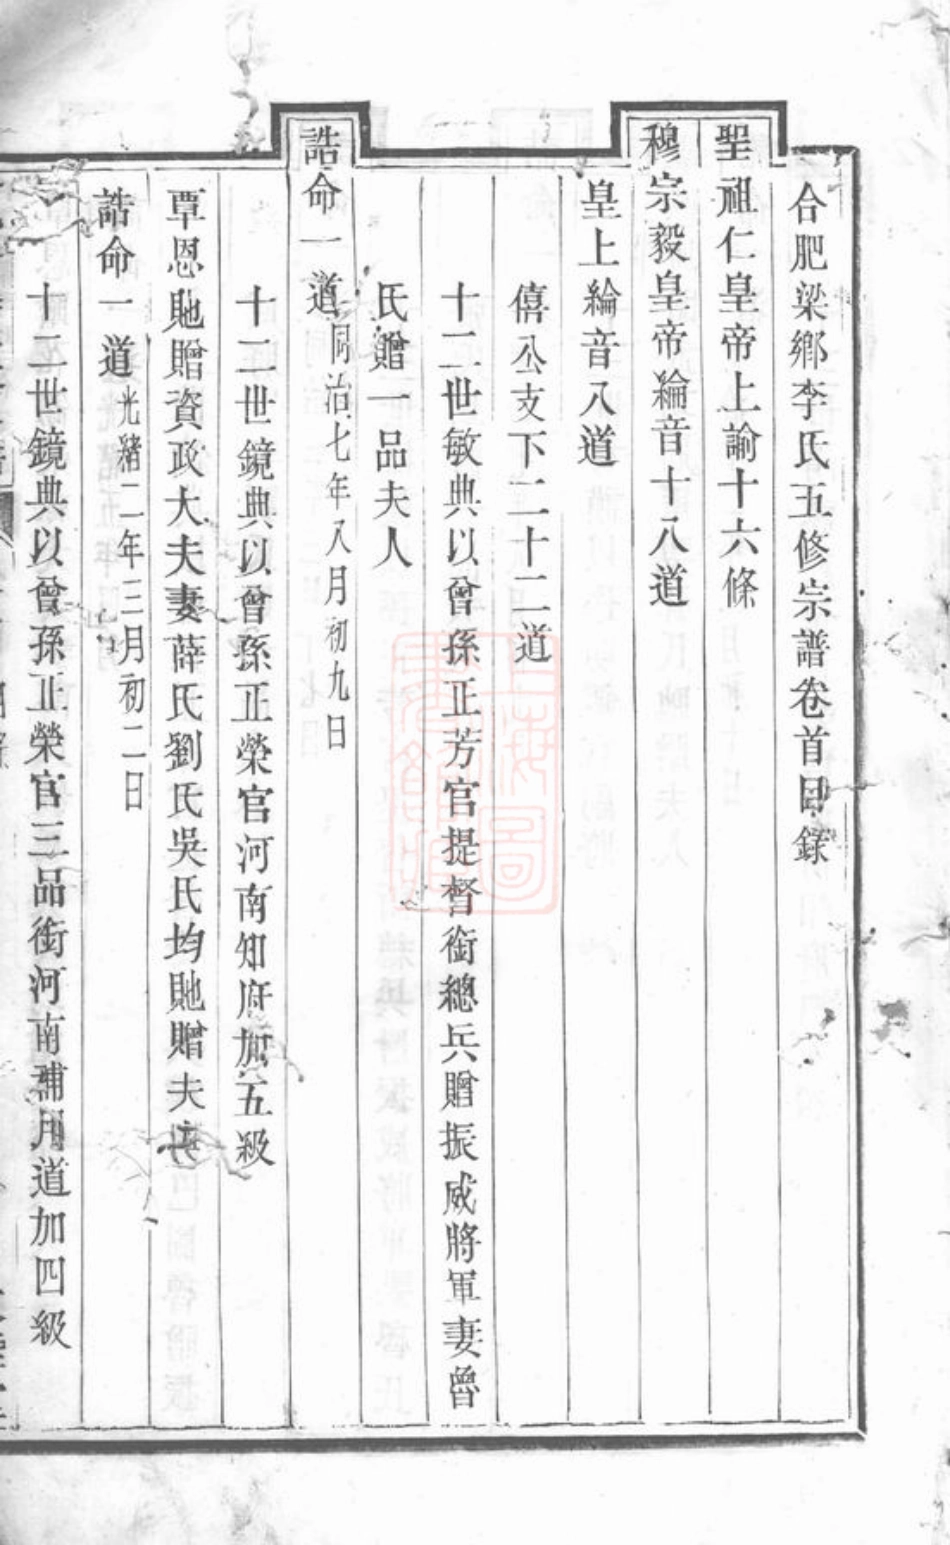 合肥梁鄉李氏五修宗譜卷首目錄
聖祖仁皇帝上諭十六條
穆宗毅皇帝綸音十八道
皇上綸音八道
僖公支下二十二道
十二世敏典以曾孫正芳官提督銜總兵贈振威將軍妻曾
氏贈一品夫人
誥命一道同治七年八月初九日
十二世鏡典以曾孫正榮官河南知府加五級
覃恩貤贈資政大夫妻薛氏劉氏吳氏均貤贈夫人
誥命一道光緒二年三月初二日
十二世鏡典以曾孫正榮官三品銜河南補用道加四級